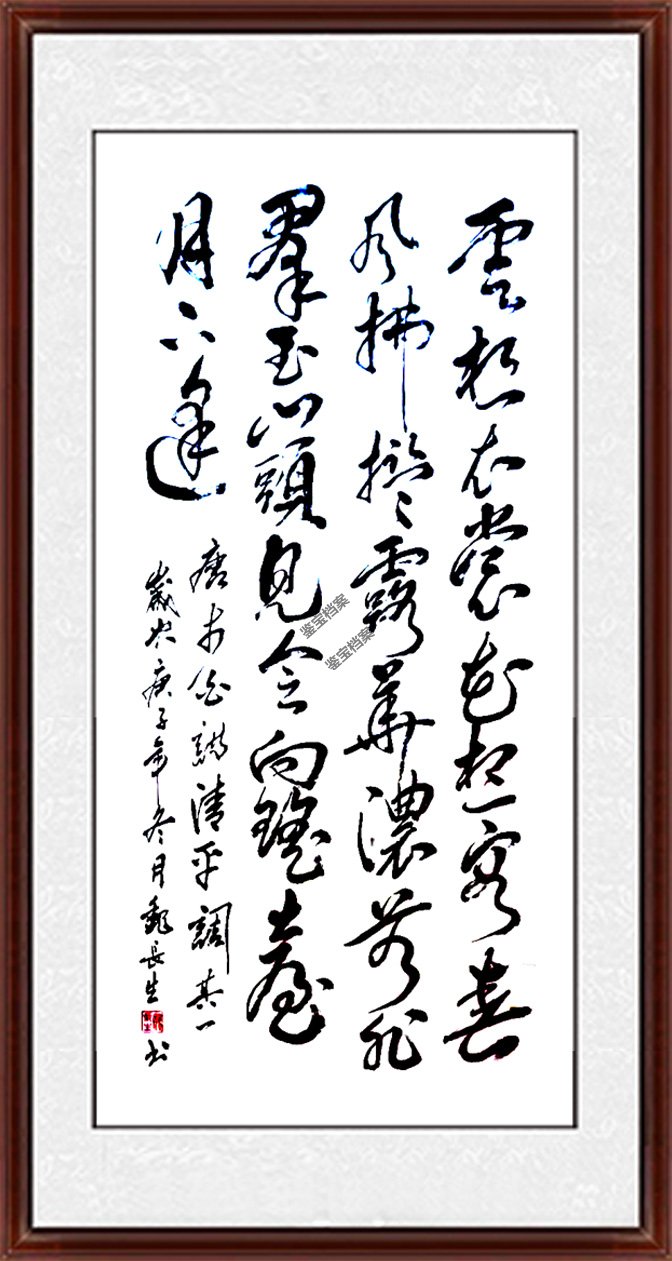 雲想衣裳花想容春
风拂檻露華濃若非
羣玉山頭見会向瑤臺
月下逢
唐李白詩清平調其一
歲次庚子年冬月魏長生书
鉴宝档案
鉴宝档案